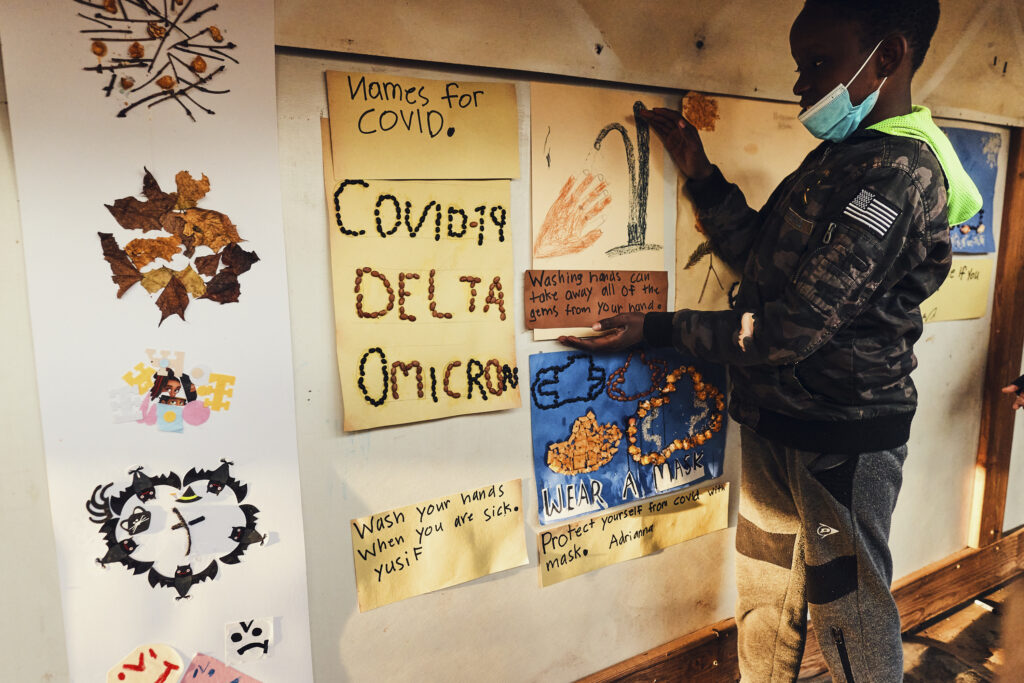 Names for
COVID.
COVID-19
DELTA
OMICRON
Washing hands can
take away all of the
gems from your hand.
WEAR A MASK
Wash your hands
When you are sick.
yusiF
Protect yourself from covid with
mask. Adrianna
If you